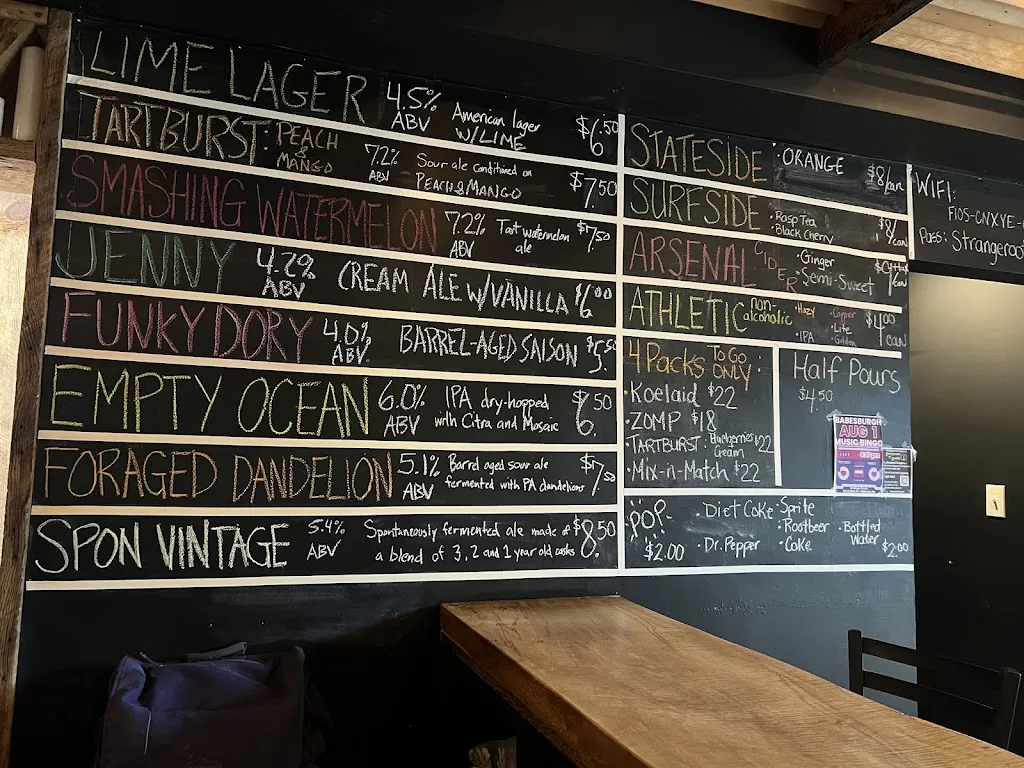 LIME LAGER 4.5% ABV American lager W/LIME $6.50
TARTBURST: PEACH & MANGO 7.2% ABV Sour ale conditioned on PEACH & MANGO $7.50
SMASHING WATERMELON 7.2% ABV Tart watermelon ale $7.50
JENNY 4.2% ABV CREAM ALE W/VANILLA $6.00
FUNKY DORY 4.0% ABV. BARREL-AGED SAISON $5.50
EMPTY OCEAN 6.0% ABV IPA dry-hopped with Citra and Mosaic $6.50
FORAGED DANDELION 5.1% ABV Barrel aged sour ale fermented with PA dandelions $7.50
SPON VINTAGE 5.4% ABV Spontaneously fermented ale made of a blend of 3, 2 and 1 year old casks $8.50
STATESIDE • ORANGE $8/can
SURFSIDE • Rasp Tea • Black Cherry $8/can
ARSENAL CIDER • Ginger • Semi-Sweet
ATHLETIC non-alcoholic • Hazy • IPA • Lite $4.00 can
4 Packs TO GO ONLY:
• Koelaid $22
• ZOMP $18
• TARTBURST: Blueberries Cream $22
• Mix-n-Match $22
Half Pours
$4.50
BABESBURGH
AUG 1
MUSIC BINGO
POP: $2.00
• Diet Coke
• Dr. Pepper
Sprite
• Rootbeer
• Coke
• Bottled Water $2.00
WIFI:
FIOS-CNXYE-
Pass: Strangeroo